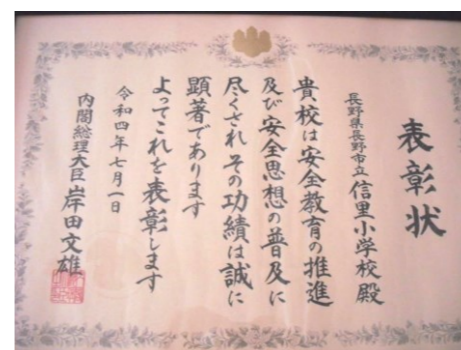 表彰状
長野県長野市立信里小学校殿
貴校は安全教育の推進
及び安全思想の普及に
尽くされその功績は誠に
顕著であります
よってこれを表彰します
令和四年七月一日
内閣総理大臣 岸田文雄